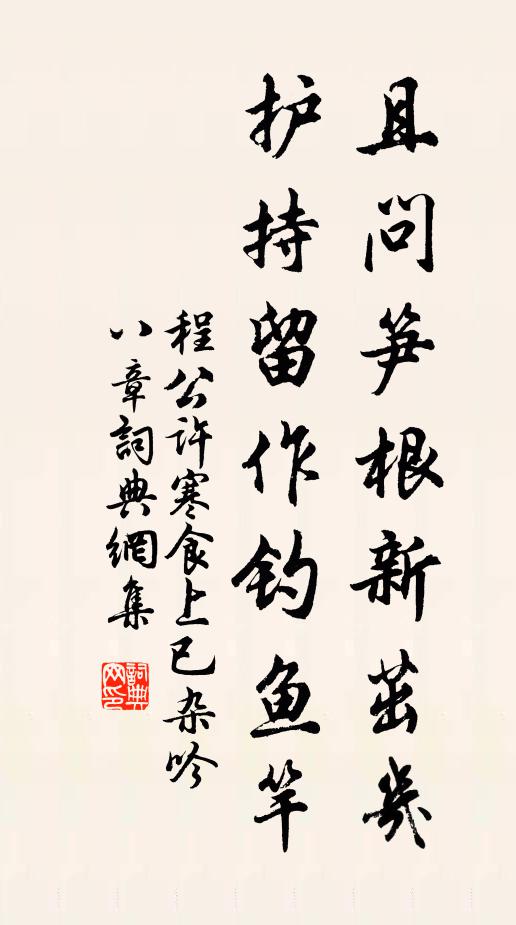 且问笋根新茁几
护持留作钓鱼竿
程公许寒食上巳杂吟
八章詞典網集
詞典網印